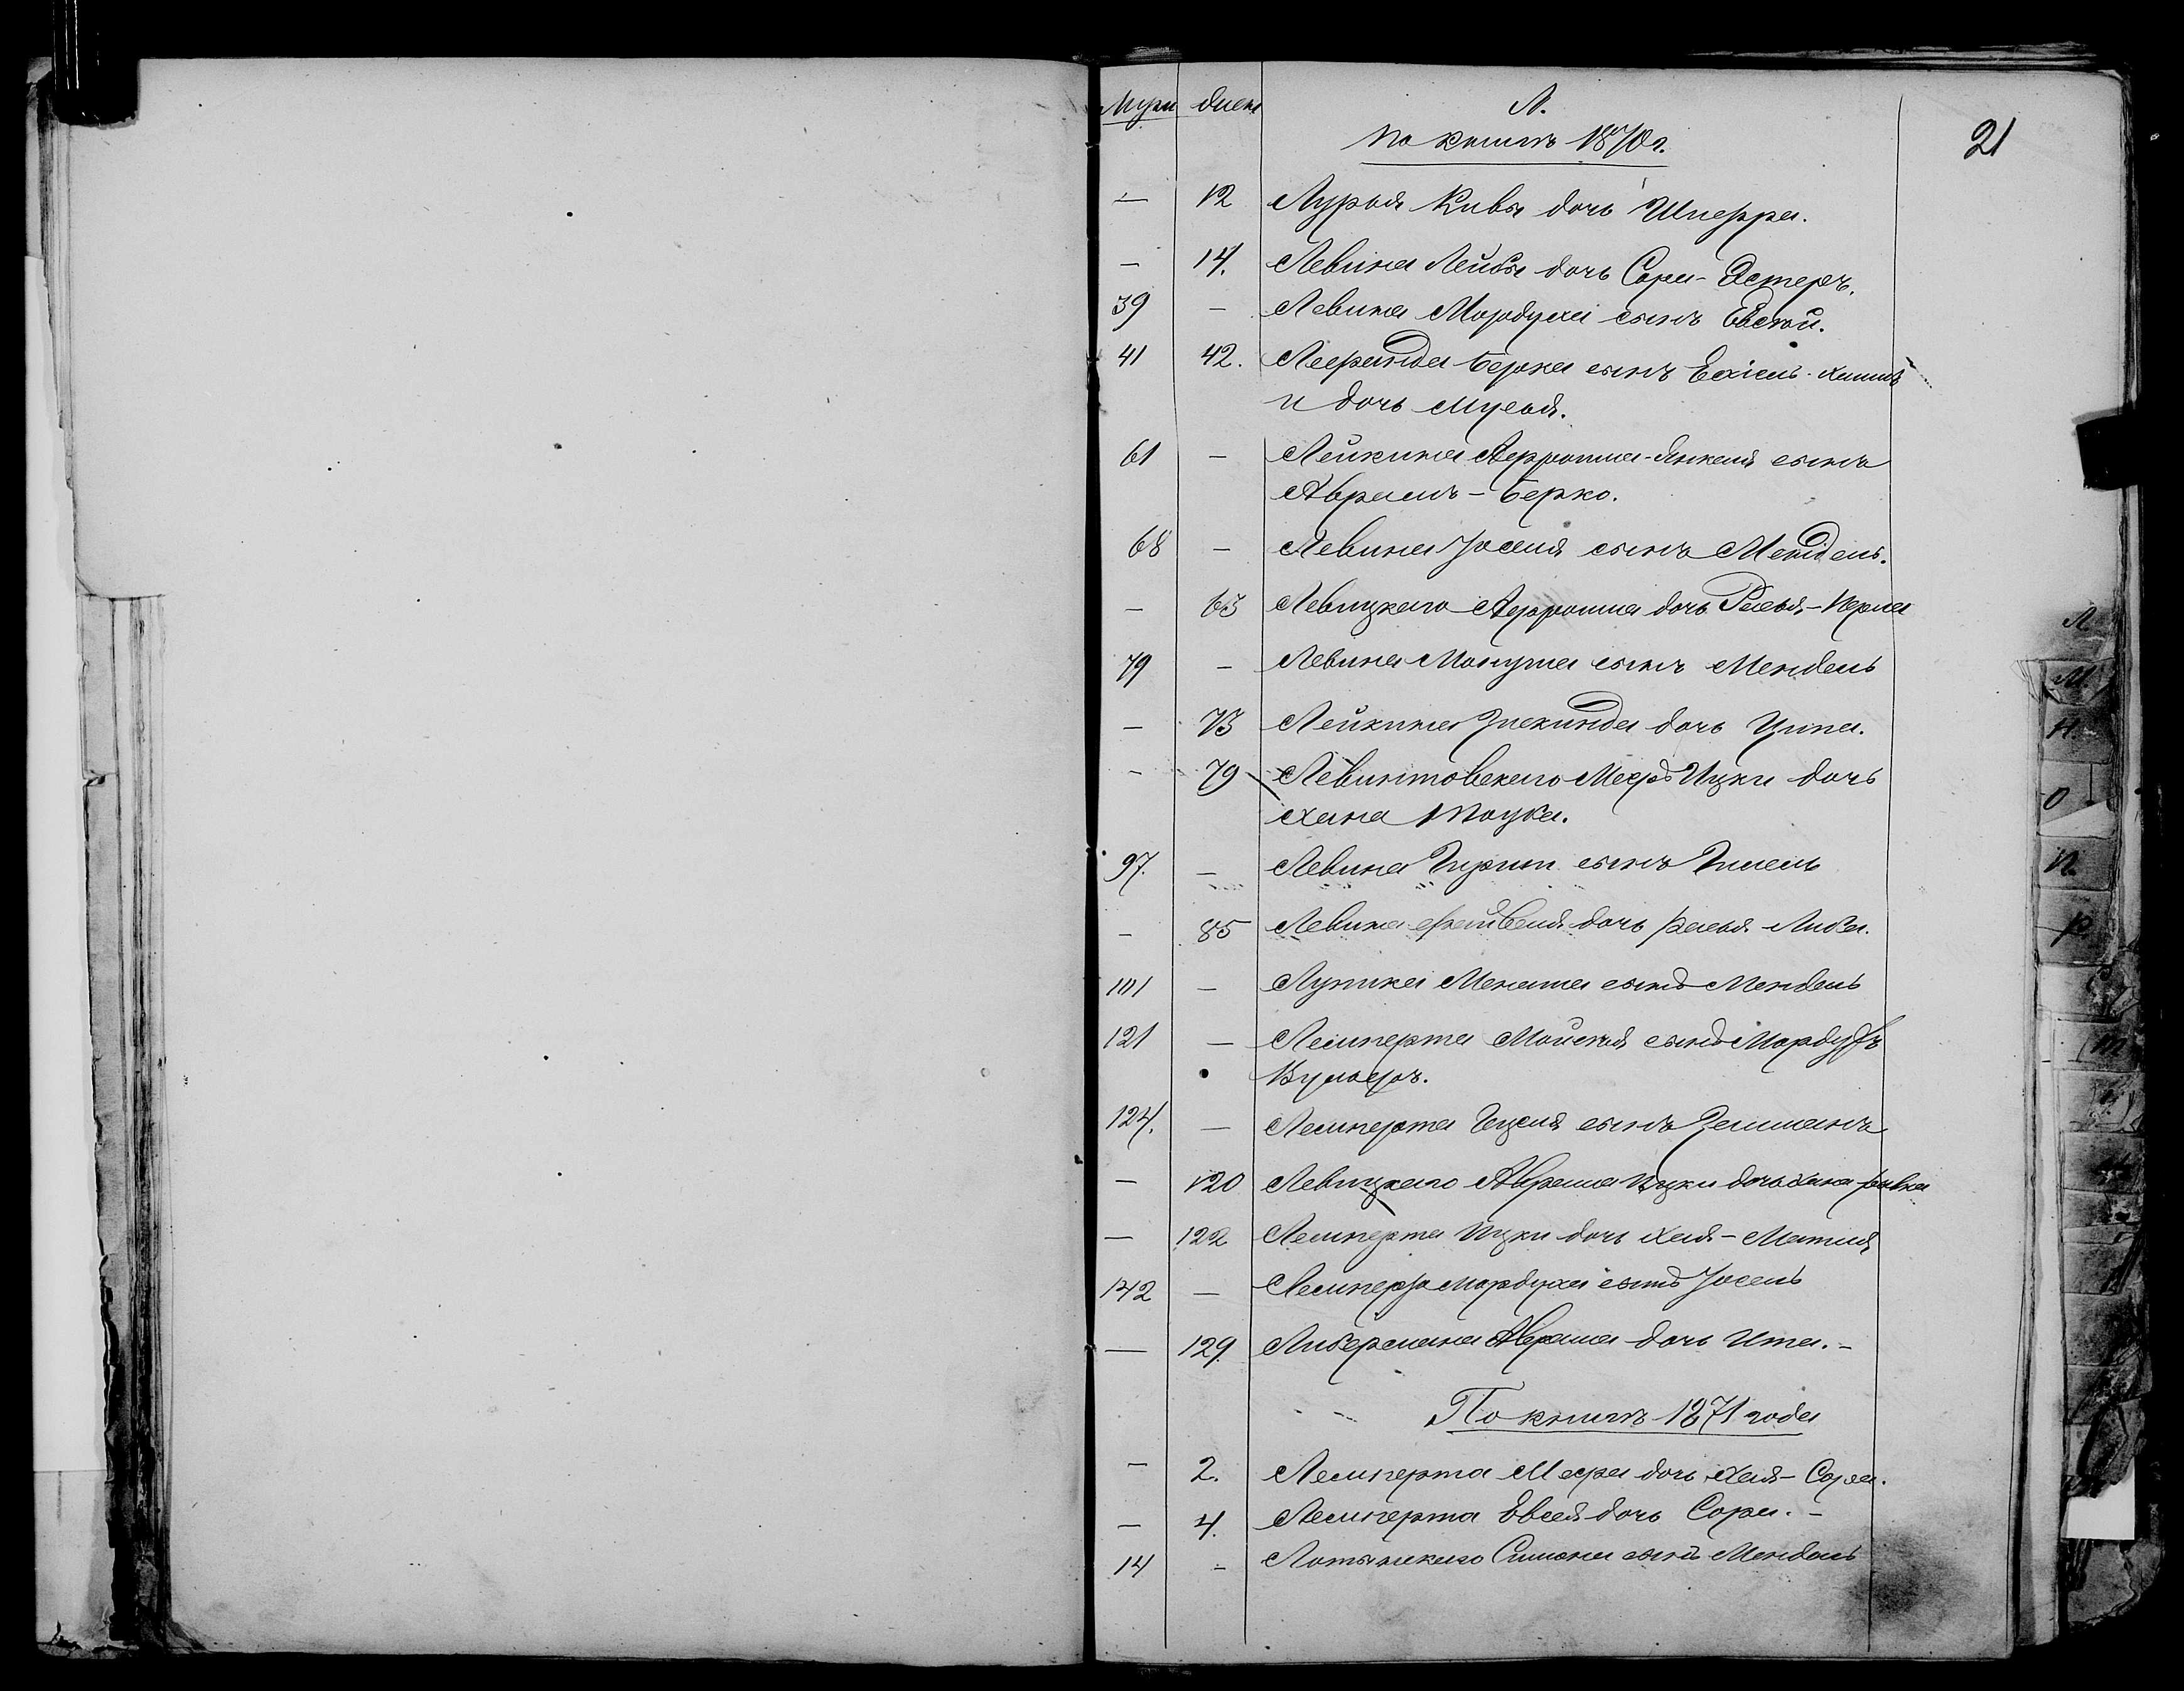 Муж. Женс. Л.
По книгѣ 1870 г.
21
— 12 Лурья Кивы дочь Шперра.
— 14. Левина Лейбы дочь Сора-Эстеръ.
39 — Левина Мордуха сынъ Евсей.
41 42. Берка сынъ Ехіель-Хаимъ
и дочь Мусья.
61 — Лейкина Аррона-Янкеля сынъ
Абрамъ-Берко.
68 — Левина Іоселя сынъ Мендель.
— 65 Левицкаго Аррона дочь Расья-Перла
79 — Левина Мануша сынъ Мендель
— 73 Лейкина Зискинда дочь Ципа.
— 79 Левинтовскаго Меера Ицки дочь
Хана Тауба.
97. — Левина Гирши сынъ
— 85 Левина Файвеля дочь Расья-Либа.
101 — Лупика Менаша сынъ Мендель
121 — Лемперта Мойсея сынъ Мордухъ
124. — Лемперта Гецеля сынъ Залманъ
— 120 Левицкаго Абрама Ицки дочь Хана-Ривка
— 122 Лемперта Ицки дочь Хая-Матля
142 — Лемперта Мордуха сынъ Іосель
— 129. Либермана Абрама дочь Ита.-
По книгѣ 1871 года
— 2. Лемперта Меера дочь Хая-Сора.
— 4. Лемперта Евсея дочь Сора.-
14 — Симона сынъ Мендель
Л
М
Н.
О
П.
Р